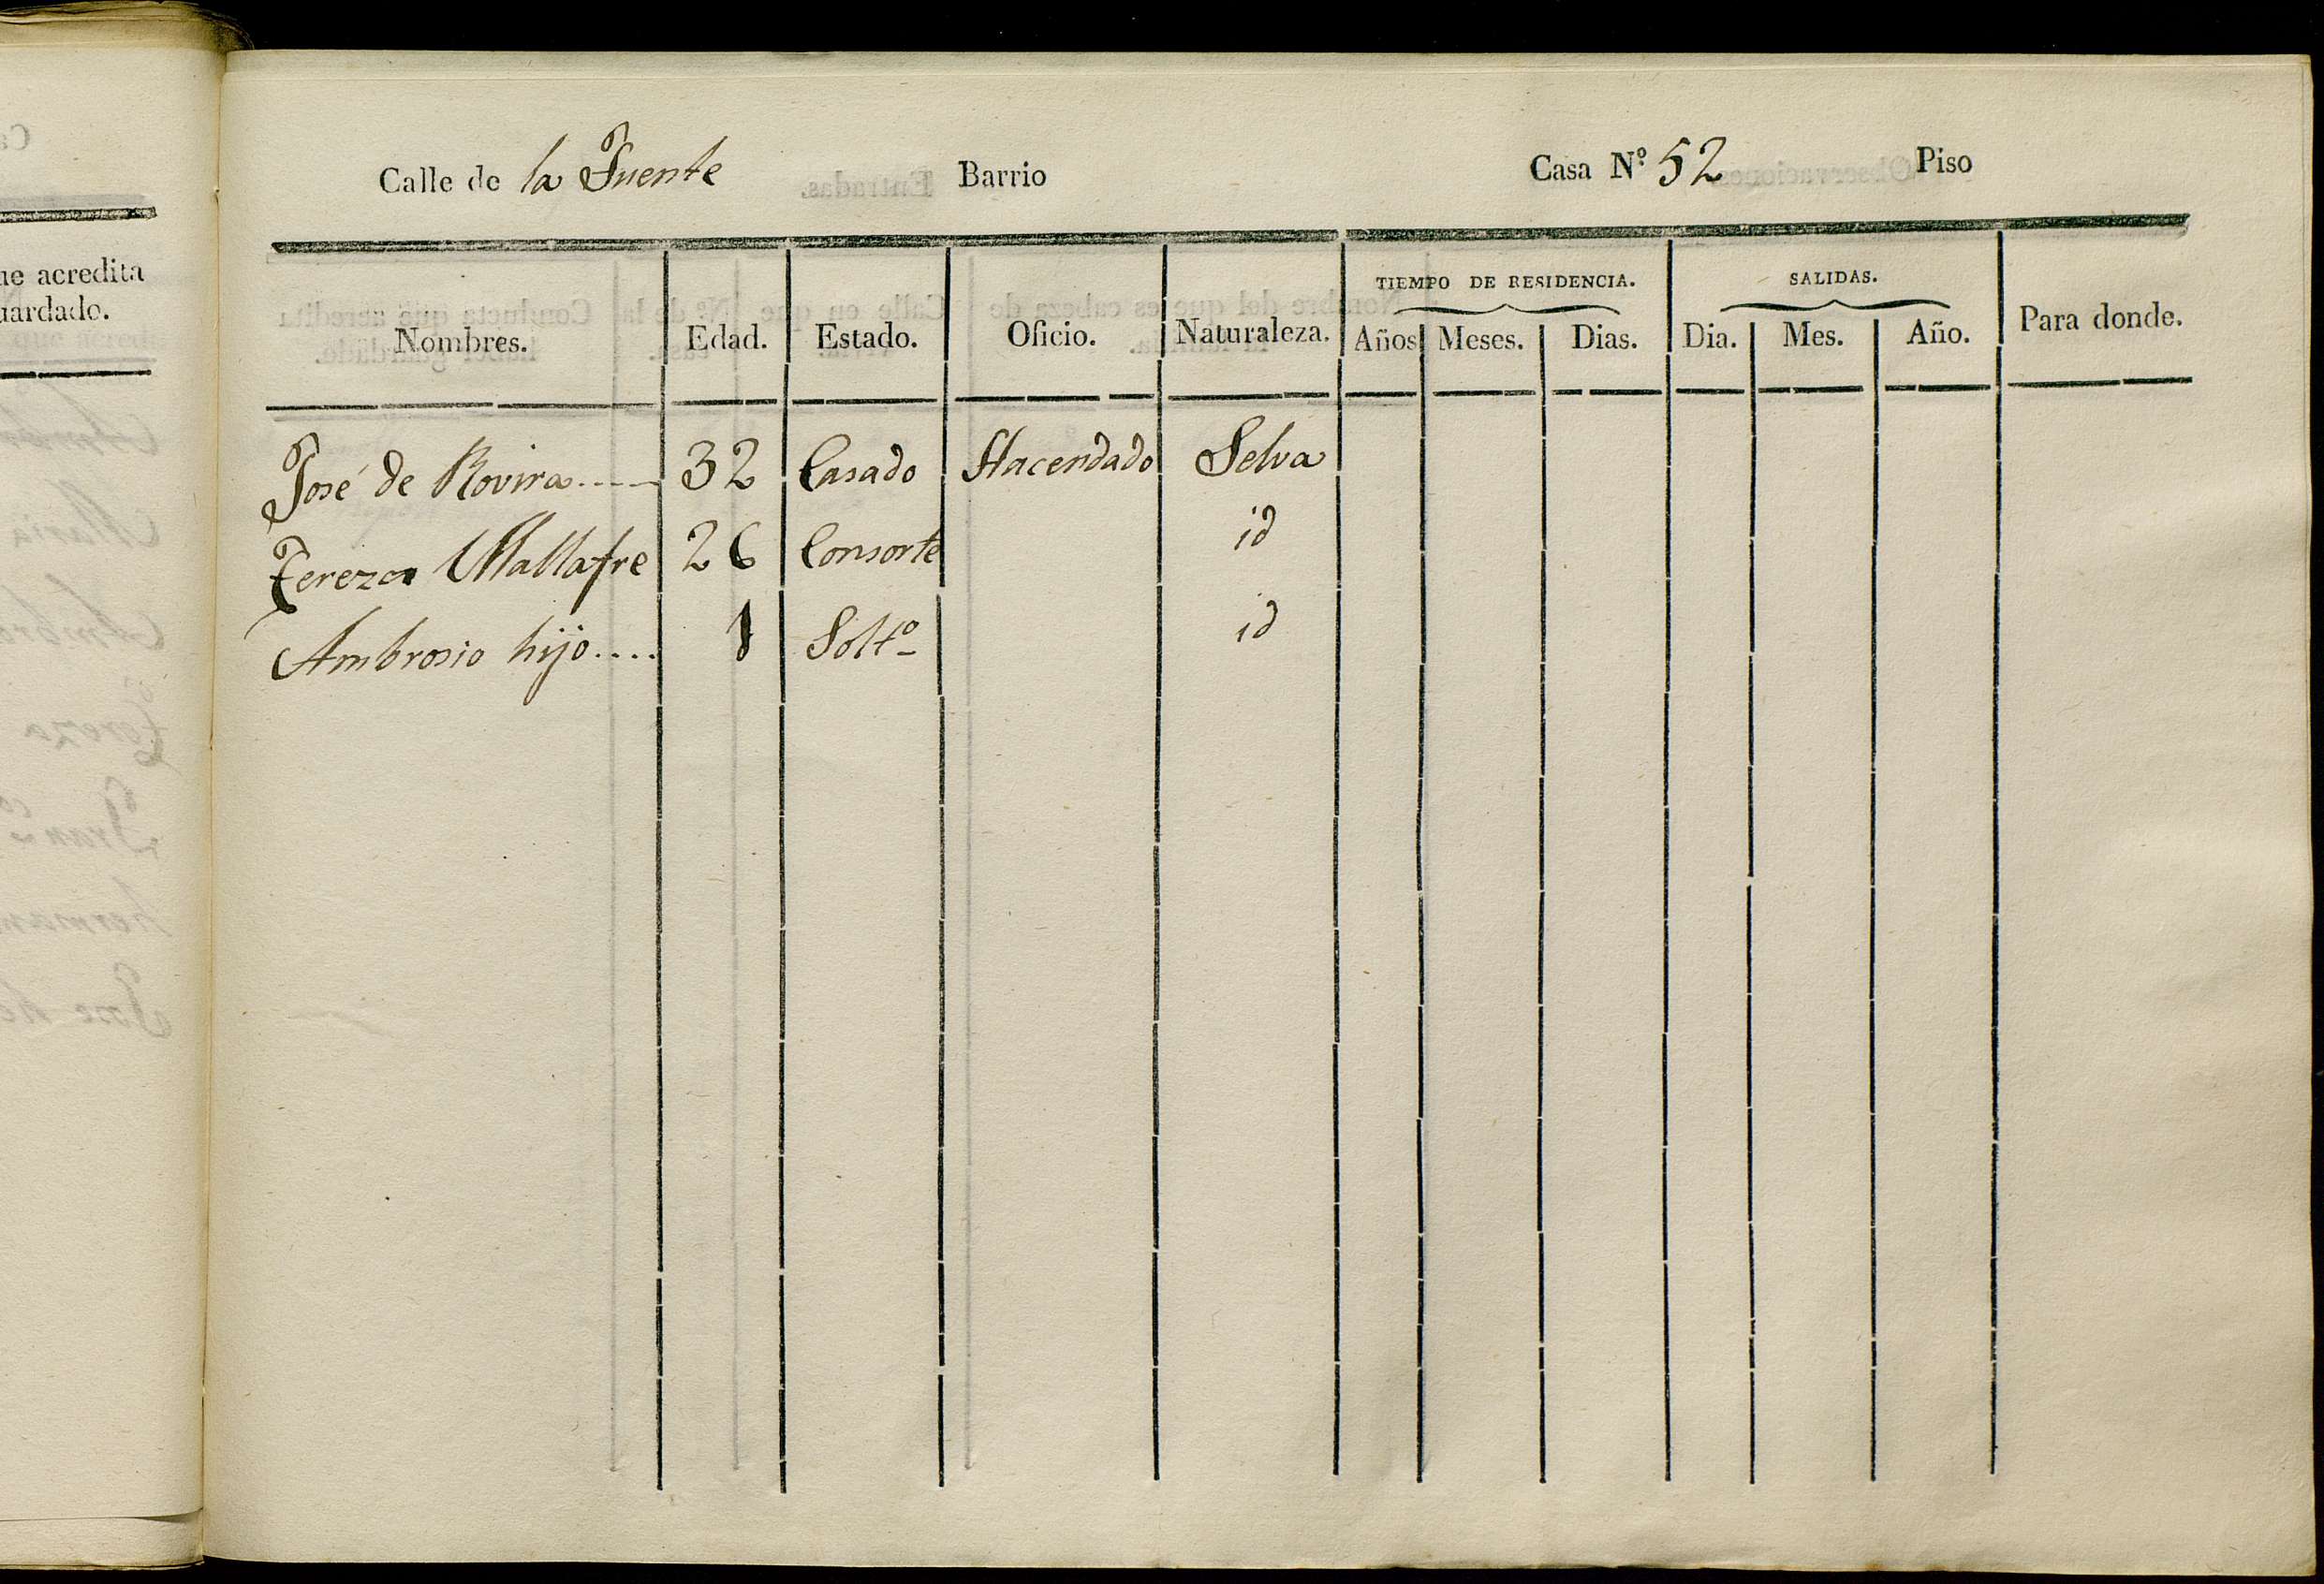 ue acredita
uardado.
Calle de la Fuente Barrio Casa Nº 52 Piso
Nombres. Edad. Estado. Oficio. Naturaleza. TIEMPO DE RESIDENCIA. SALIDAS. Para donde.
Años Meses. Dias. Dia. Mes. Año.
José de Rovira..... 32 Casado Hacendado Selva
Tereza Mallafre 26 Consorte id
Ambrosio hijo.... 1 Solto id